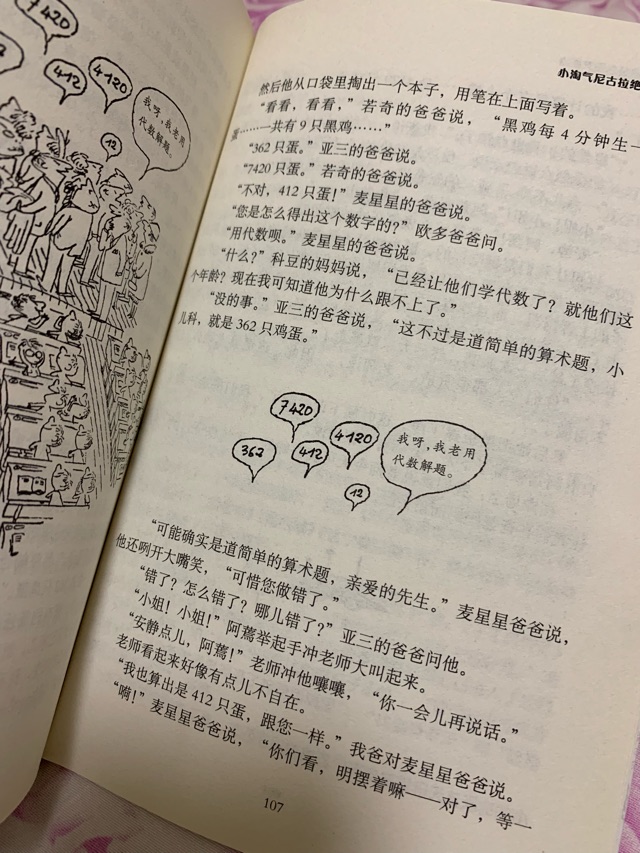 7420
412
4120
我呀，我老用
代数解题。
12
小淘气尼古拉绝
然后他从口袋里掏出一个本子，用笔在上面写着。
“看看，看看，”若奇的爸爸说，“黑鸡每4分钟生一
蛋………一共有9只黑鸡……”
“362只蛋。”亚三的爸爸说。
“7420只蛋。”若奇的爸爸说。
“不对，412只蛋！”麦星星的爸爸说。
“您是怎么得出这个数字的？”欧多爸爸问。
“用代数呗。”麦星星的爸爸说。
“什么？”科豆的妈妈说，“已经让他们学代数了？就他们这
个年龄？现在我可知道他为什么跟不上了。”
“没的事。”亚三的爸爸说，“这不过是道简单的算术题，小
儿科，就是362只鸡蛋。”
7420
4120
362
412
12
我呀，我老用
代数解题。
“可能确实是道简单的算术题，亲爱的先生。”麦星星爸爸说，
他还咧开大嘴笑，“可惜您做错了。”
“错了？怎么错了？哪儿错了？”亚三的爸爸问他。
“小姐！小姐！”阿蔫举起手冲老师大叫起来。
“安静点儿，阿蔫！”老师冲他嚷嚷，“你一会儿再说话。”
老师看起来好像有点儿不自在。
“我也算出是412只蛋，跟您一样。”我爸对麦星星爸爸说。
“嗬！”麦星星爸爸说，“你们看，明摆着嘛——对了，等一
107